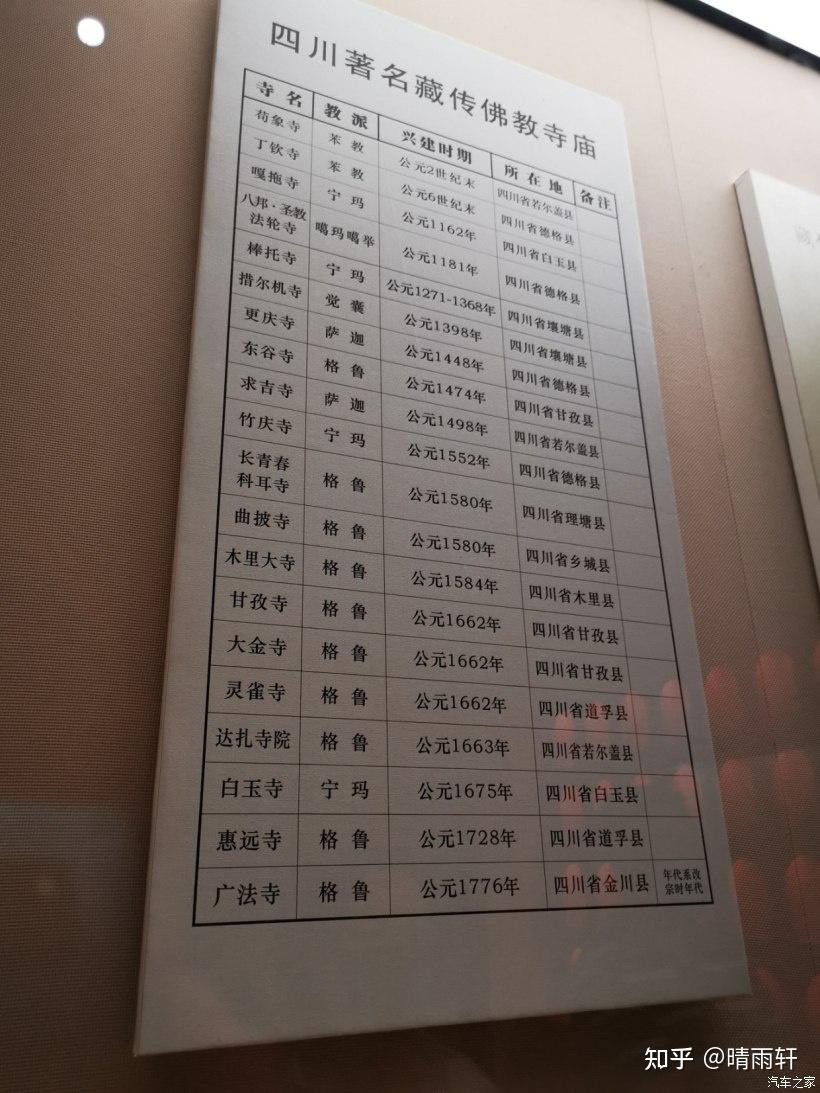 四川著名藏传佛教寺庙
寺名 教派 兴建时期 所在地 备注
苟象寺 苯教 公元2世纪末 四川省若尔盖县
丁钦寺 苯教 公元6世纪末 四川省德格县
嘎拖寺 宁玛 公元1162年 四川省白玉县
八邦·圣教
法轮寺 噶玛噶举 公元1181年 四川省德格县
棒托寺 宁玛 公元1271-1368年 四川省壤塘县
措尔机寺 觉囊 公元1398年 四川省壤塘县
更庆寺 萨迦 公元1448年 四川省德格县
东谷寺 格鲁 公元1474年 四川省甘孜县
求吉寺 萨迦 公元1498年 四川省若尔盖县
竹庆寺 宁玛 公元1552年 四川省德格县
长青春
科耳寺 格鲁 公元1580年 四川省理塘县
曲披寺 格鲁 公元1580年 四川省乡城县
木里大寺 格鲁 公元1584年 四川省木里县
甘孜寺 格鲁 公元1662年 四川省甘孜县
大金寺 格鲁 公元1662年 四川省甘孜县
灵雀寺 格鲁 公元1662年 四川省道孚县
达扎寺院 格鲁 公元1663年 四川省若尔盖县
白玉寺 宁玛 公元1675年 四川省白玉县
惠远寺 格鲁 公元1728年 四川省道孚县
广法寺 格鲁 公元1776年 四川省金川县 年代系改
宗时年代
知乎 @晴雨轩
汽车之家